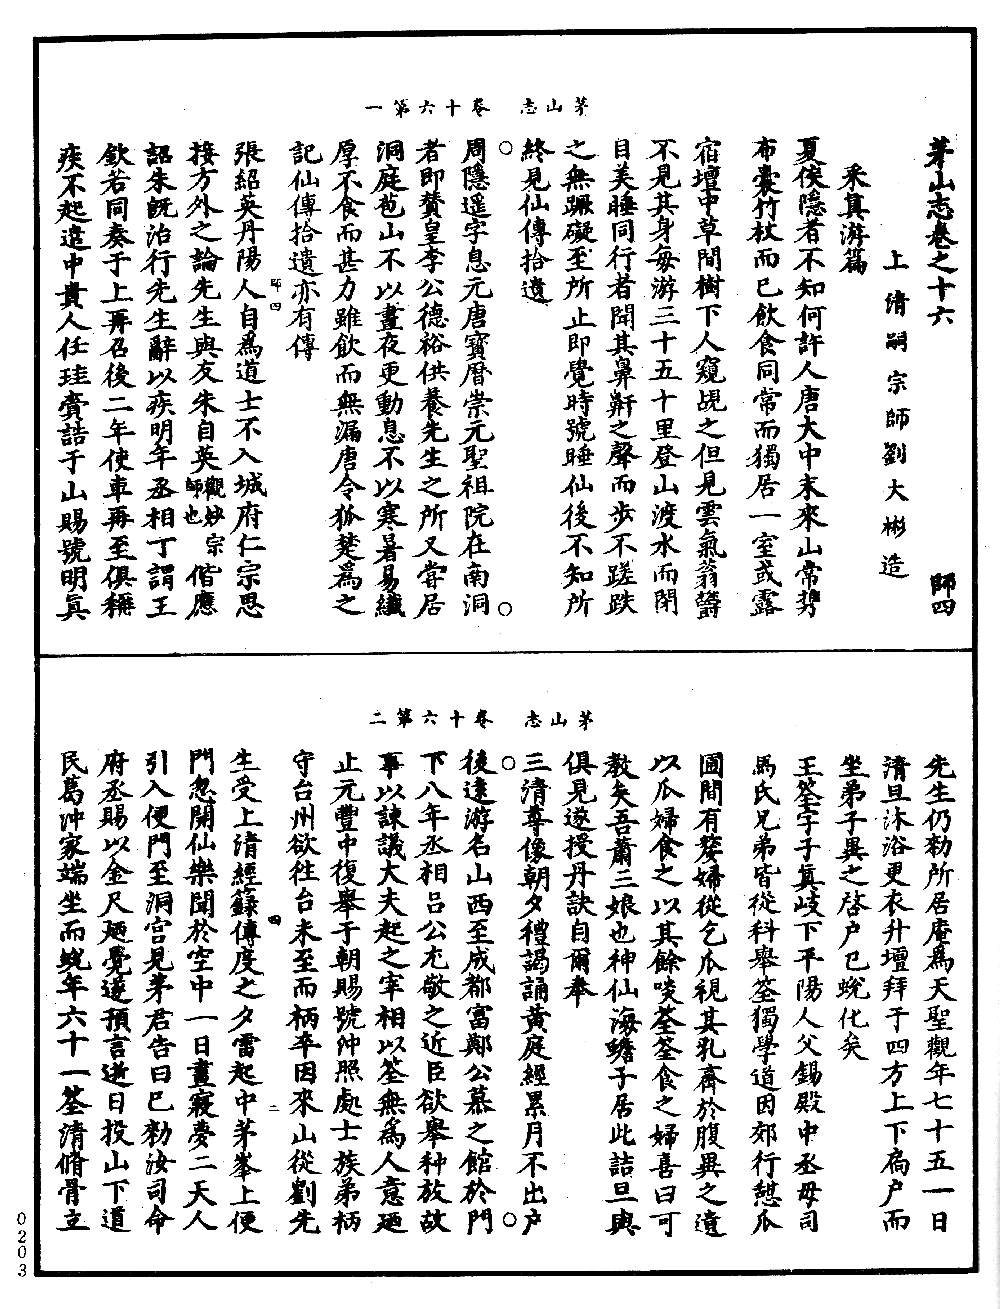 茅山志 卷十六第一
茅山志卷之十六 師四
上清嗣宗師劉大彬造
采真游篇
夏侯隱者不知何許人唐大中末來山常攜
布囊竹杖而已飲食同常而獨居一室或露
宿壇中草間樹下人窺覘之但見雲氣蓊鬱
不見其身每游三十五十里登山渡水而閉
目美睡同行者聞其鼻鼾之聲而步不蹉跌
之無蹶礙至所止即覺時號睡仙後不知所
終見仙傳拾遺
周隱遥字息元唐寶曆崇元聖祖院在南洞
者即贊皇李公德裕供養先生之所又嘗居
洞庭苞山不以晝夜更動息不以寒暑易纖
厚不食而甚力雖飲而無漏唐令狐楚爲之
記仙傳拾遺亦有傳
師四
張紹英丹陽人自爲道士不入城府仁宗思
接方外之論先生與友朱自英觀妙宗師也偕應
詔朱既治行先生辭以疾明年丞相丁謂王
欽若同奏于上再召後二年使車再至俱稱
疾不起遣中貴人任珪賫誥于山賜號明眞
茅山志 卷十六第二
先生仍勑所居庵爲天聖觀年七十五一日
清旦沐浴更衣升壇拜于四方上下扃户而
坐弟子異之啓户已蛻化矣
王筌字子眞岐下平陽人父錫殿中丞母司
馬氏兄弟皆從科舉筌獨學道因郊行憇瓜
圃間有婺婦從乞瓜視其乳齊於腹異之遺
以瓜婦食之以其餘啖筌筌食之婦喜曰可
教矣吾蕭三娘也神仙海蟾子居此詰旦與
俱見遂授丹訣自爾奉
三清尊像朝夕禮謁誦黄庭經累月不出户
後遠游名山西至成都富鄭公慕之館於門
下八年丞相吕公尤敬之近臣欲舉种放故
事以諫議大夫起之宰相以筌無爲人意廼
止元豐中復舉于朝賜號冲照處士族弟柄
守台州欲往台未至而柄卒因來山從劉先
四 二
生受上清經籙傳度之夕雷起中茅峯上便
門忽開仙樂聞於空中一日晝寢夢二天人
引入便門至洞宫見茅君告曰已勑汝司命
府丞賜以金尺廼覺遂預言逝日投山下道
民葛沖家端坐而蛻年六十一筌清脩骨立
0203